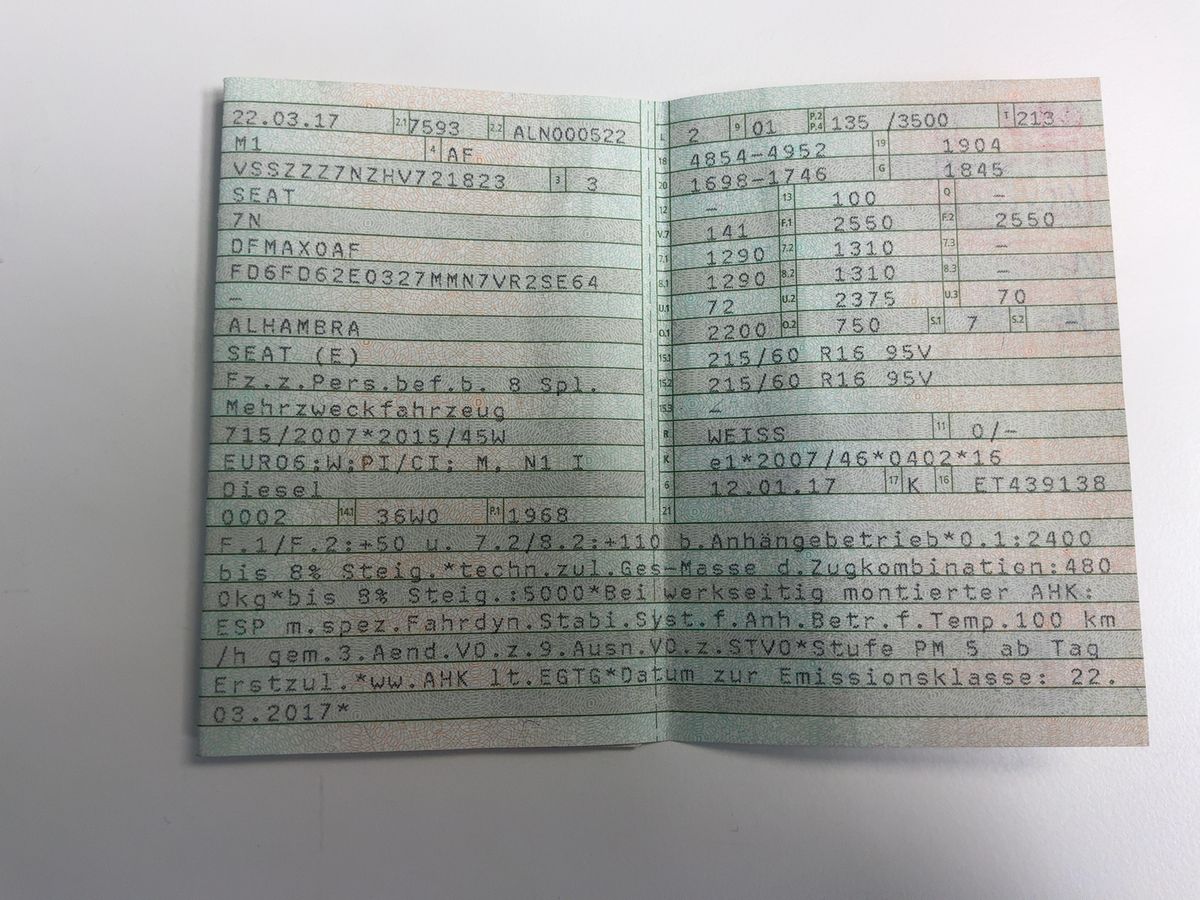 22.03.17 2.1 7593 2.2 ALN000522
M1 4 AF
VSSZZZ7NZHV721823 3 3
SEAT
7N
DFMAX0AF
FD6FD62E0327MMN7VR2SE64
–
ALHAMBRA
SEAT (E)
Fz.z.Pers.bef.b. 8 Spl.
Mehrzweckfahrzeug
715/2007*2015/45W
EURO6;W;PI/CI; M, N1 I
Diesel
0002 14.1 36W0 P.1 1968
L 2 9 01 P.2 P.4 135 /3500 T 213
18 4854–4952 19 1904
20 1698–1746 G 1845
12 – 13 100 Q –
V.7 141 F.1 2550 F.2 2550
7.1 1290 7.2 1310 7.3 –
8.1 1290 8.2 1310 8.3 –
U.1 72 U.2 2375 U.3 70
O.1 2200 O.2 750 S.1 7 S.2 –
15.1 215/60 R16 95V
15.2 215/60 R16 95V
15.3 –
R WEISS 11 0/–
K e1*2007/46*0402*16
6 12.01.17 17 K 16 ET439138
21
F.1/F.2:+50 u. 7.2/8.2:+110 b.Anhängebetrieb*O.1:2400
bis 8% Steig.*techn.zul.Ges–Masse d.Zugkombination:480
0kg*bis 8% Steig.:5000*Bei werkseitig montierter AHK:
ESP m.spez.Fahrdyn.Stabi.Syst.f.Anh.Betr.f.Temp.100 km
/h gem.3.Aend.VO.z.9.Ausn.VO.z.STVO*Stufe PM 5 ab Tag
Erstzul.*ww.AHK lt.EGTG*Datum zur Emissionsklasse: 22.
03.2017*